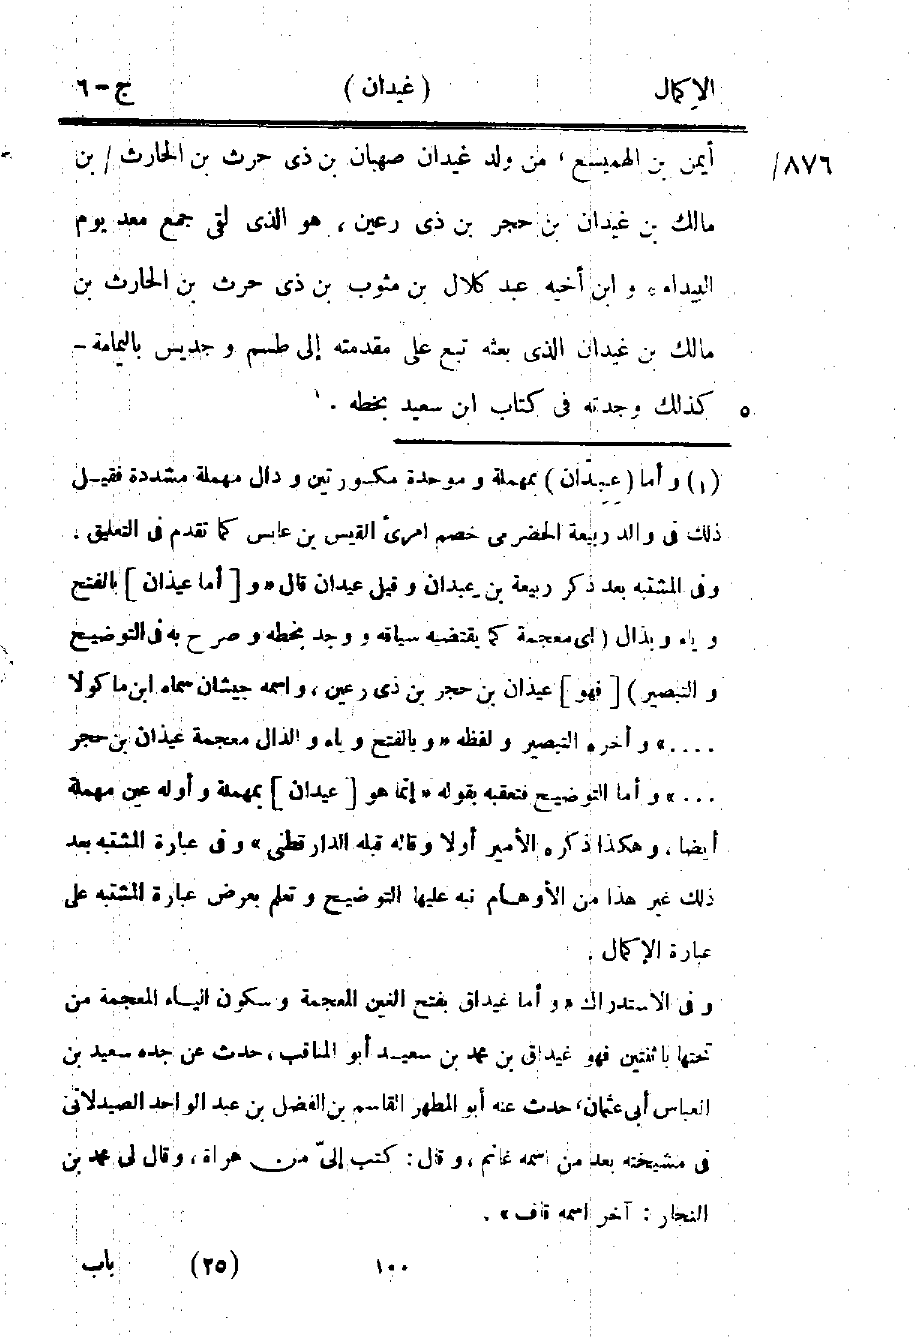 الإكمال (غيدان) ج-٦
أيمن بن الهميسع، من ولد غيدان صهبان بن ذى حرث بن الحارث / بن ٨٧٦/
مالك بن غيدان بن حجر بن ذى رعين، هو الذى لقى جمع معد يوم
البيداء، و ابن أخيه عبد كلال بن مثوب بن ذى حرث بن الحارث بن
مالك بن غيدان الذى بعثه تبع على مقدمته إلى طسم و جديس باليمامة -
كذلك وجدته فى كتاب ابن سعيد بخطه . ١ ٥
(١) و أما (عِبِدّان) بمهملة و موحدة مكسورتين و دال مهملة مشددة فقيل
ذلك فى والد ربيعة الحضرمى خصم امرئ القيس بن عابس كما تقدم فى التعليق .
وفى المشتبه بعد ذكر ربيعة بن عبدان و قيل عيدان قال «و [ أما عيذان ] بالفتح
و ياء و بذال (اى معجمة كما يقتضيه سياقه و وجد بخطه و صرح به فى التوضيح
و التبصير) [ فهو ] عيذان بن حجر بن ذى رعين، و اسمه جيشان سماه ابن ماكولا
....» و أخره التبصير و لفظه «و بالفتح و ياء و الذال معجمة عيذان بن حجر
...» و أما التوضيح فتعقبه بقوله «إنما هو [ عيدان ] بمهملة و أوله عين مهملة
أيضا، و هكذا ذكره الأمير أولا و قاله قبله الدارقطنى» و فى عبارة المشتبه بعد
ذلك غير هذا من الأوهام نبه عليها التوضيح و تعلم بعرض عبارة المشتبه على
عبارة الإكمال .
و فى الاستدراك «و أما غيداق بفتح الغين المعجمة و سكون الياء المعجمة من
تحتها باثنتين فهو غيداق بن محمد بن سعيد أبو المناقب، حدث عن جده سعيد بن
العباس أبى عثمان، حدث عنه أبو المطهر القاسم بن الفضل بن عبد الواحد الصيدلانى
فى مشيخته بعد من اسمه غانم، و قال: كتب إلىّ من هراة، و قال لى محمد بن
النجار: آخر اسمه قاف» .
١٠٠ (٢٥) باب